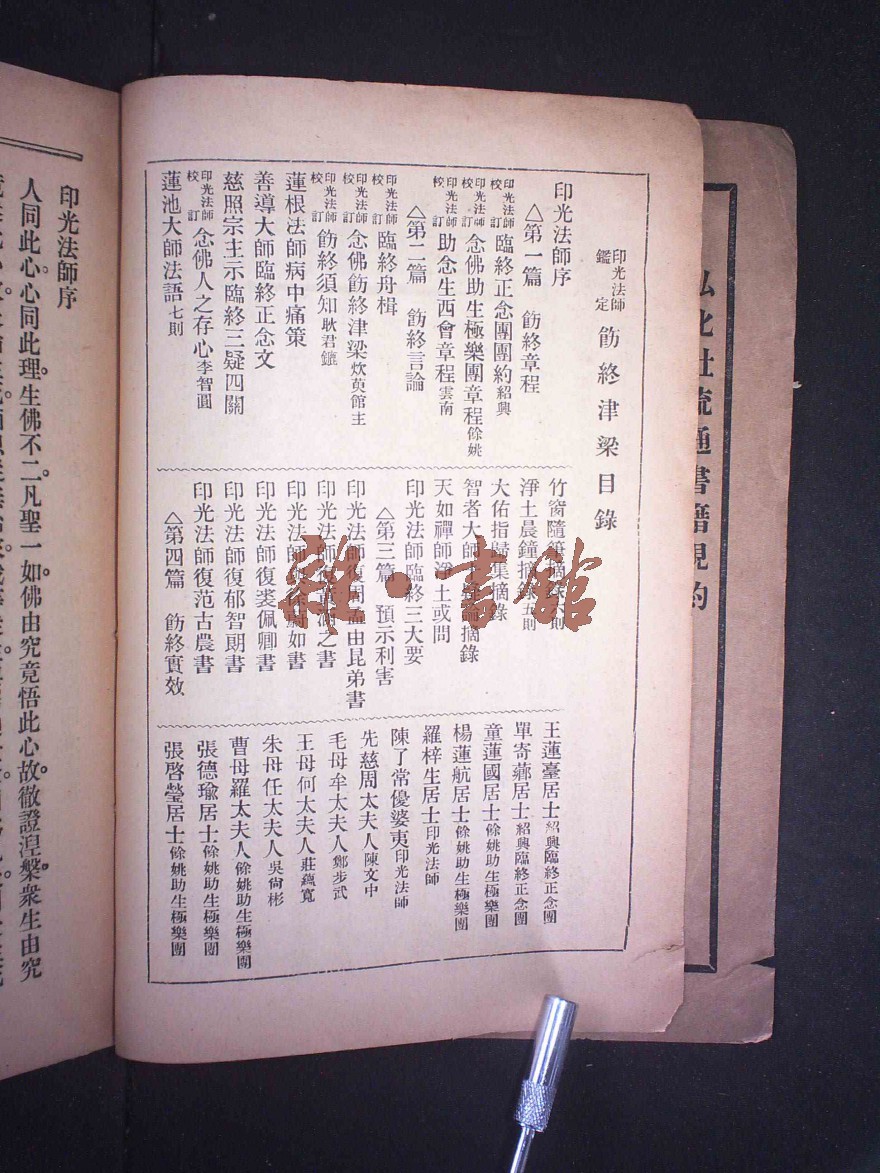 弘化社流通書籍規約
印光法師鑑定 飭終津梁目錄
印光法師序
△第一篇 飭終章程
印光法師校訂 臨終正念團團約 紹興
印光法師校訂 念佛助生極樂團章程 餘姚
印光法師校訂 助念生西會章程 雲南
△第二篇 飭終言論
印光法師校訂 臨終舟楫
印光法師校訂 念佛飭終津梁 炊萸館主
印光法師校訂 飭終須知 耿君
蓮根法師病中痛策
善導大師臨終正念文
慈照宗主示臨終三疑四關
印光法師校訂 念佛人之存心 李智圓
蓮池大師法語 七則
竹窗隨筆摘 則
淨土晨鐘摘 五則
大佑指歸集摘錄
智者大師 論摘錄
天如禪師淨土或問
印光法師臨終三大要
△第三篇 預示利害
印光法師 由昆弟書
印光法師復 之書
印光法師 如書
印光法師復裘佩卿書
印光法師復郁智朗書
印光法師復范古農書
△第四篇 飭終實效
王蓮臺居士 紹興臨終正念團
單寄薌居士 紹興臨終正念團
童蓮國居士 餘姚助生極樂團
楊蓮航居士 餘姚助生極樂團
羅梓生居士 印光法師
陳了常優婆夷 印光法師
先慈周太夫人 陳文中
毛母牟太夫人 鄭步武
王母何太夫人 莊蘊寬
朱母任太夫人 吳尙彬
曹母羅太夫人 餘姚助生極樂團
張德瑜居士 餘姚助生極樂團
張啓瑩居士 餘姚助生極樂團
印光法師序
人同此心。心同此理。生佛不二。凡聖一如。佛由究竟悟此心。故徹證涅槃。衆生由究
雜·書館